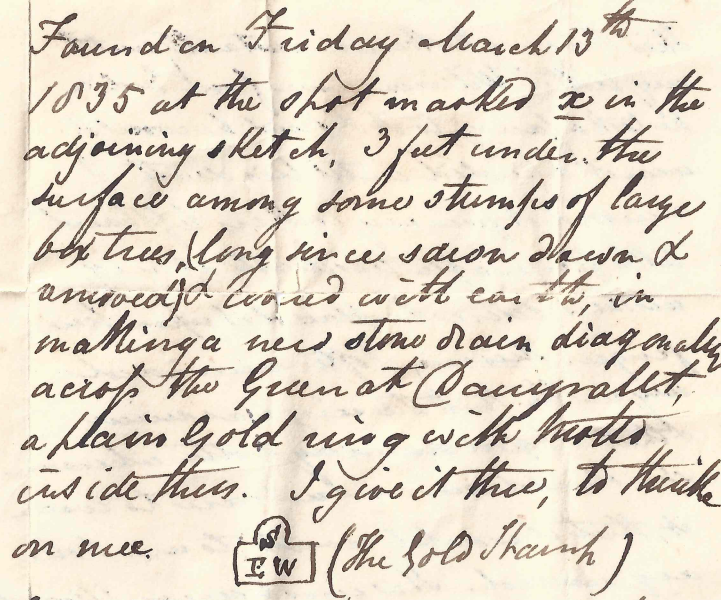 Found on Friday March 13th
1835 at the spot marked x in the
adjoining sketch, 3 feet under the
surface among some stumps of large
box trees, (long since sawn down &
removed) & covered with earth, in
making a new stone drain diagonally
across the Green at
a plain Gold ring with Motto
inside thus. I give it thee, to thinke
on mee.
S
I W (The Gold Stamp)